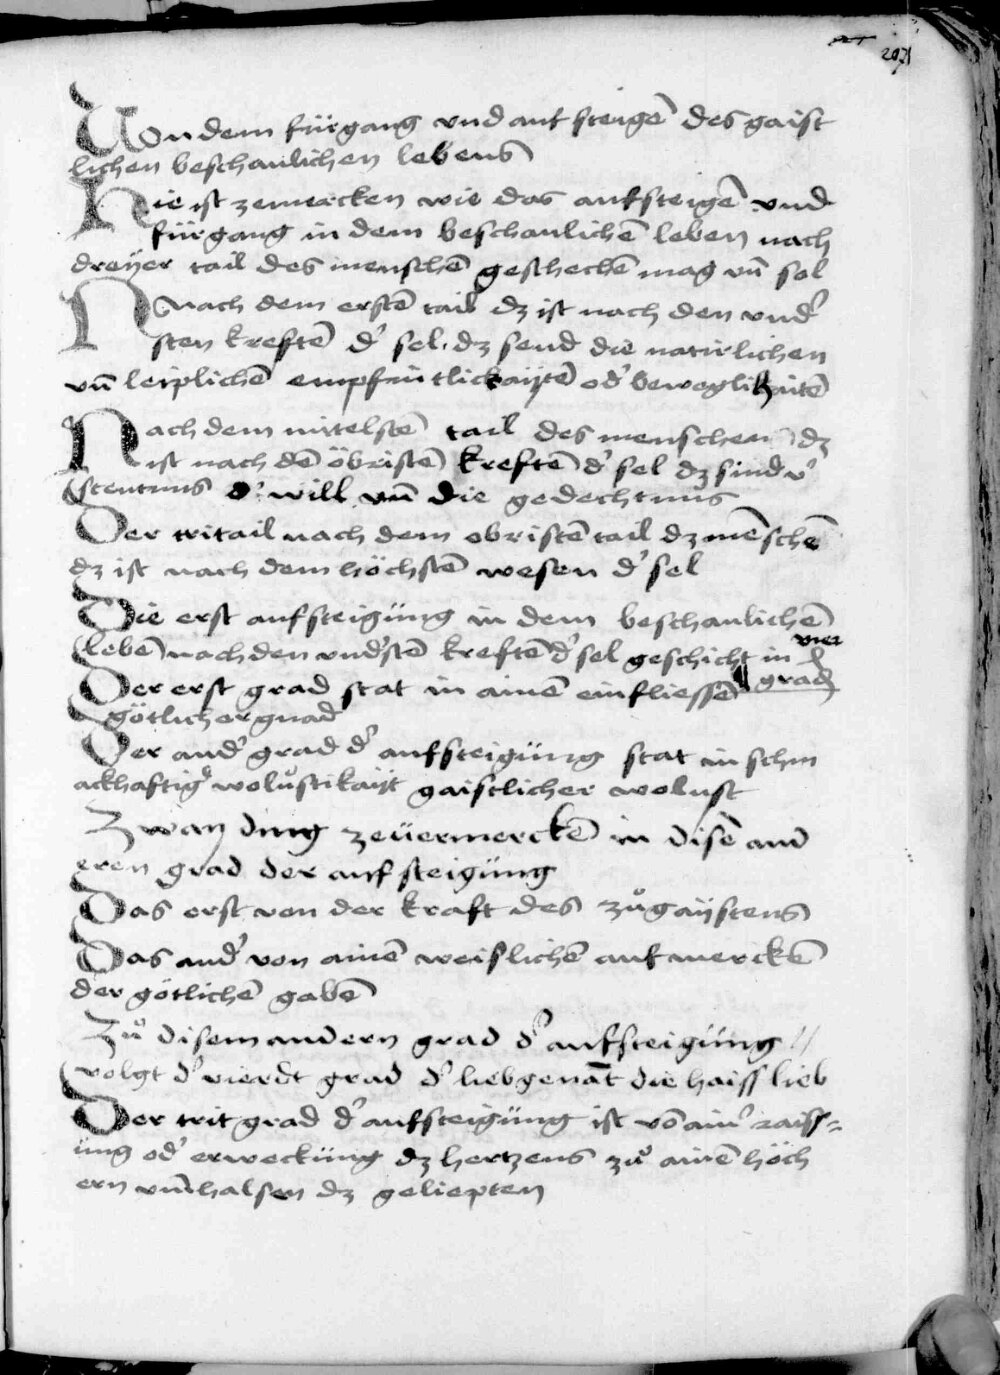 297
Von dem fürgang vnd auf steigē des gaist
lichen beschaulichen lebens
Hie ist zemercken wie das aufsteigē vnd
fürgang in dem beschaulichē leben nach
dreyer tail des menschē geschechē mag vn̄ sol
Nach dem erstē tail dz ist nach den vnd᾿
sten kreftē d᾿ sel dz send die natürlichen
vn̄ leiplichē empfintlickaÿtē od᾿ beweglikaitē
Nach dem mittelstē tail des menschen dz
ist nach dē öbristē kreftē d᾿ sel dz sind v᾿
stentnus d᾿ will vn̄ die gedechtnus
Der tritail nach dem obristē tail dz mēschē
dz ist nach dem höchstē wesen d᾿ sel
Die erst aufsteigüng in dem beschaulichē
lebē nach den vnd᾿stē kreftē d᾿ sel geschicht in vier
grad
Der erst grad stat in ainē einfliessē
götlicher gnad
Der and᾿ grad d᾿ aufsteigüng stat in schm
ackhaftig᾿ wolůstikaÿt gaistlicher wollust
Zway ding zeüermerckē in disē and
eren grad der auf steigüng
Das erst von der kraft des zůgaÿstens
Das and᾿ von ainē weislichē aufmerckē
der götlichē gabē
Zů disem andern grad d᾿ aufsteigüng //
volgt d᾿ vierdt grad d᾿ lieb genāt die haiss lieb
Der trit grad d᾿ aufsteigüng ist vō ain᾿ raiss=
üng od᾿ erweckung dz hertzens zů ainē höch
ern vmhalsen dz geliepten